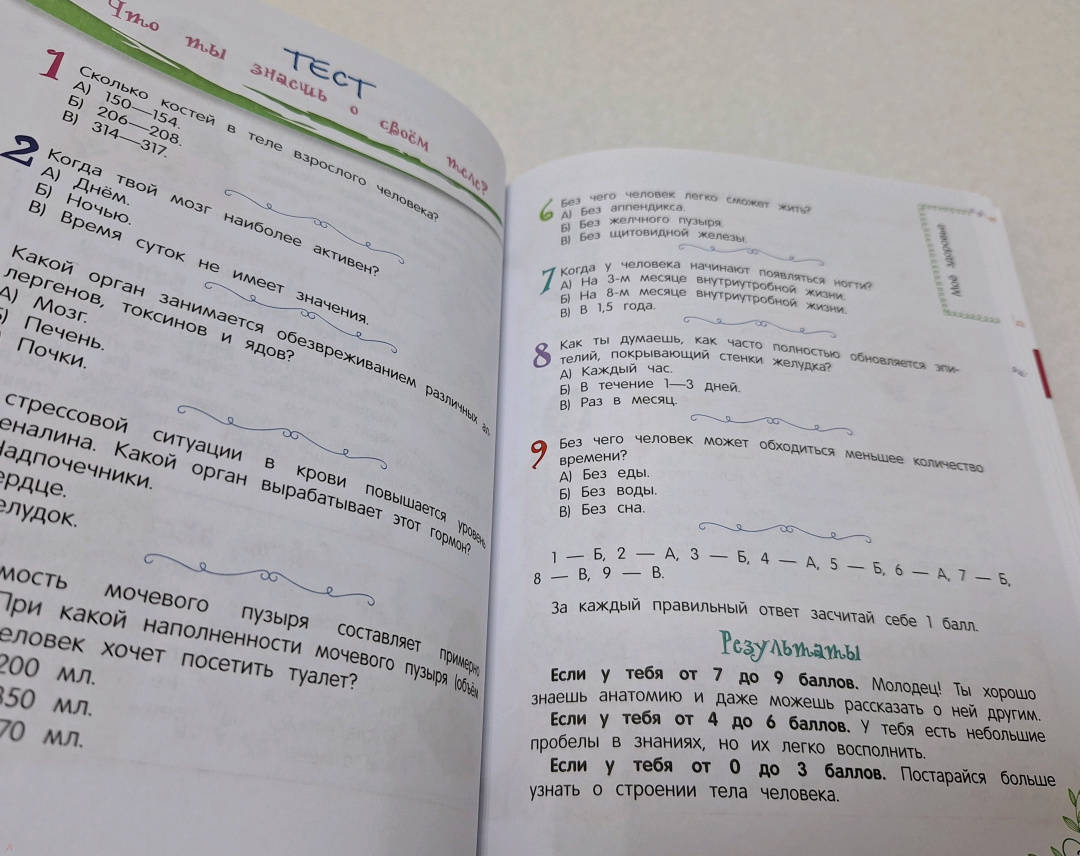 ТЕСТ
Что ты знаешь о своём теле?
1 Сколько костей в теле взрослого человека?
А) 150—154.
Б) 206—208.
В) 314—317.
2 Когда твой мозг наиболее активен?
А) Днём.
Б) Ночью.
В) Время суток не имеет значения.
Какой орган занимается обезвреживанием различных ал-
лергенов, токсинов и ядов?
А) Мозг.
Б) Печень.
Почки.
стрессовой ситуации в крови повышается уровень
еналина. Какой орган вырабатывает этот гормон?
Надпочечники.
ердце.
елудок.
мость мочевого пузыря составляет примерно
При какой наполненности мочевого пузыря (объём
еловек хочет посетить туалет?
200 мл.
350 мл.
70 мл.
6 Без чего человек легко сможет жить?
А) Без аппендикса.
Б) Без желчного пузыря.
В) Без щитовидной железы.
7 Когда у человека начинают появляться ногти?
А) На 3-м месяце внутриутробной жизни.
Б) На 8-м месяце внутриутробной жизни.
В) В 1,5 года.
8 Как ты думаешь, как часто полностью обновляется эпи-
телий, покрывающий стенки желудка?
А) Каждый час.
Б) В течение 1—3 дней.
В) Раз в месяц.
9 Без чего человек может обходиться меньшее количество
времени?
А) Без еды.
Б) Без воды.
В) Без сна.
1 — Б, 2 — А, 3 — Б, 4 — А, 5 — Б, 6 — А, 7 — Б,
8 — В, 9 — В.
За каждый правильный ответ засчитай себе 1 балл.
Результаты
Если у тебя от 7 до 9 баллов. Молодец! Ты хорошо
знаешь анатомию и даже можешь рассказать о ней другим.
Если у тебя от 4 до 6 баллов. У тебя есть небольшие
пробелы в знаниях, но их легко восполнить.
Если у тебя от 0 до 3 баллов. Постарайся больше
узнать о строении тела человека.
Моё здоровье